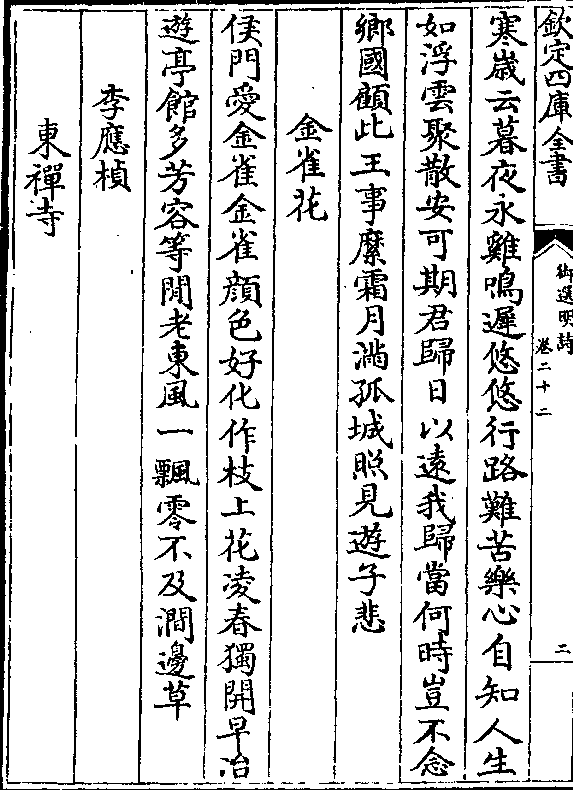 欽定四庫全書
御選明詩
卷二十二
二
寒歳云暮夜永雞鳴遲悠悠行路難苦樂心自知人生
如浮雲聚散安可期君歸日以逺我歸當何時豈不念
鄉國顧此王事縻霜月滿孤城照見遊子悲
金雀花
侯門愛金雀金雀顔色好化作枝上花凌春獨開早冶
遊亭館多芳容等閒老東風一飄零不及澗邊草
李應楨
東禪寺